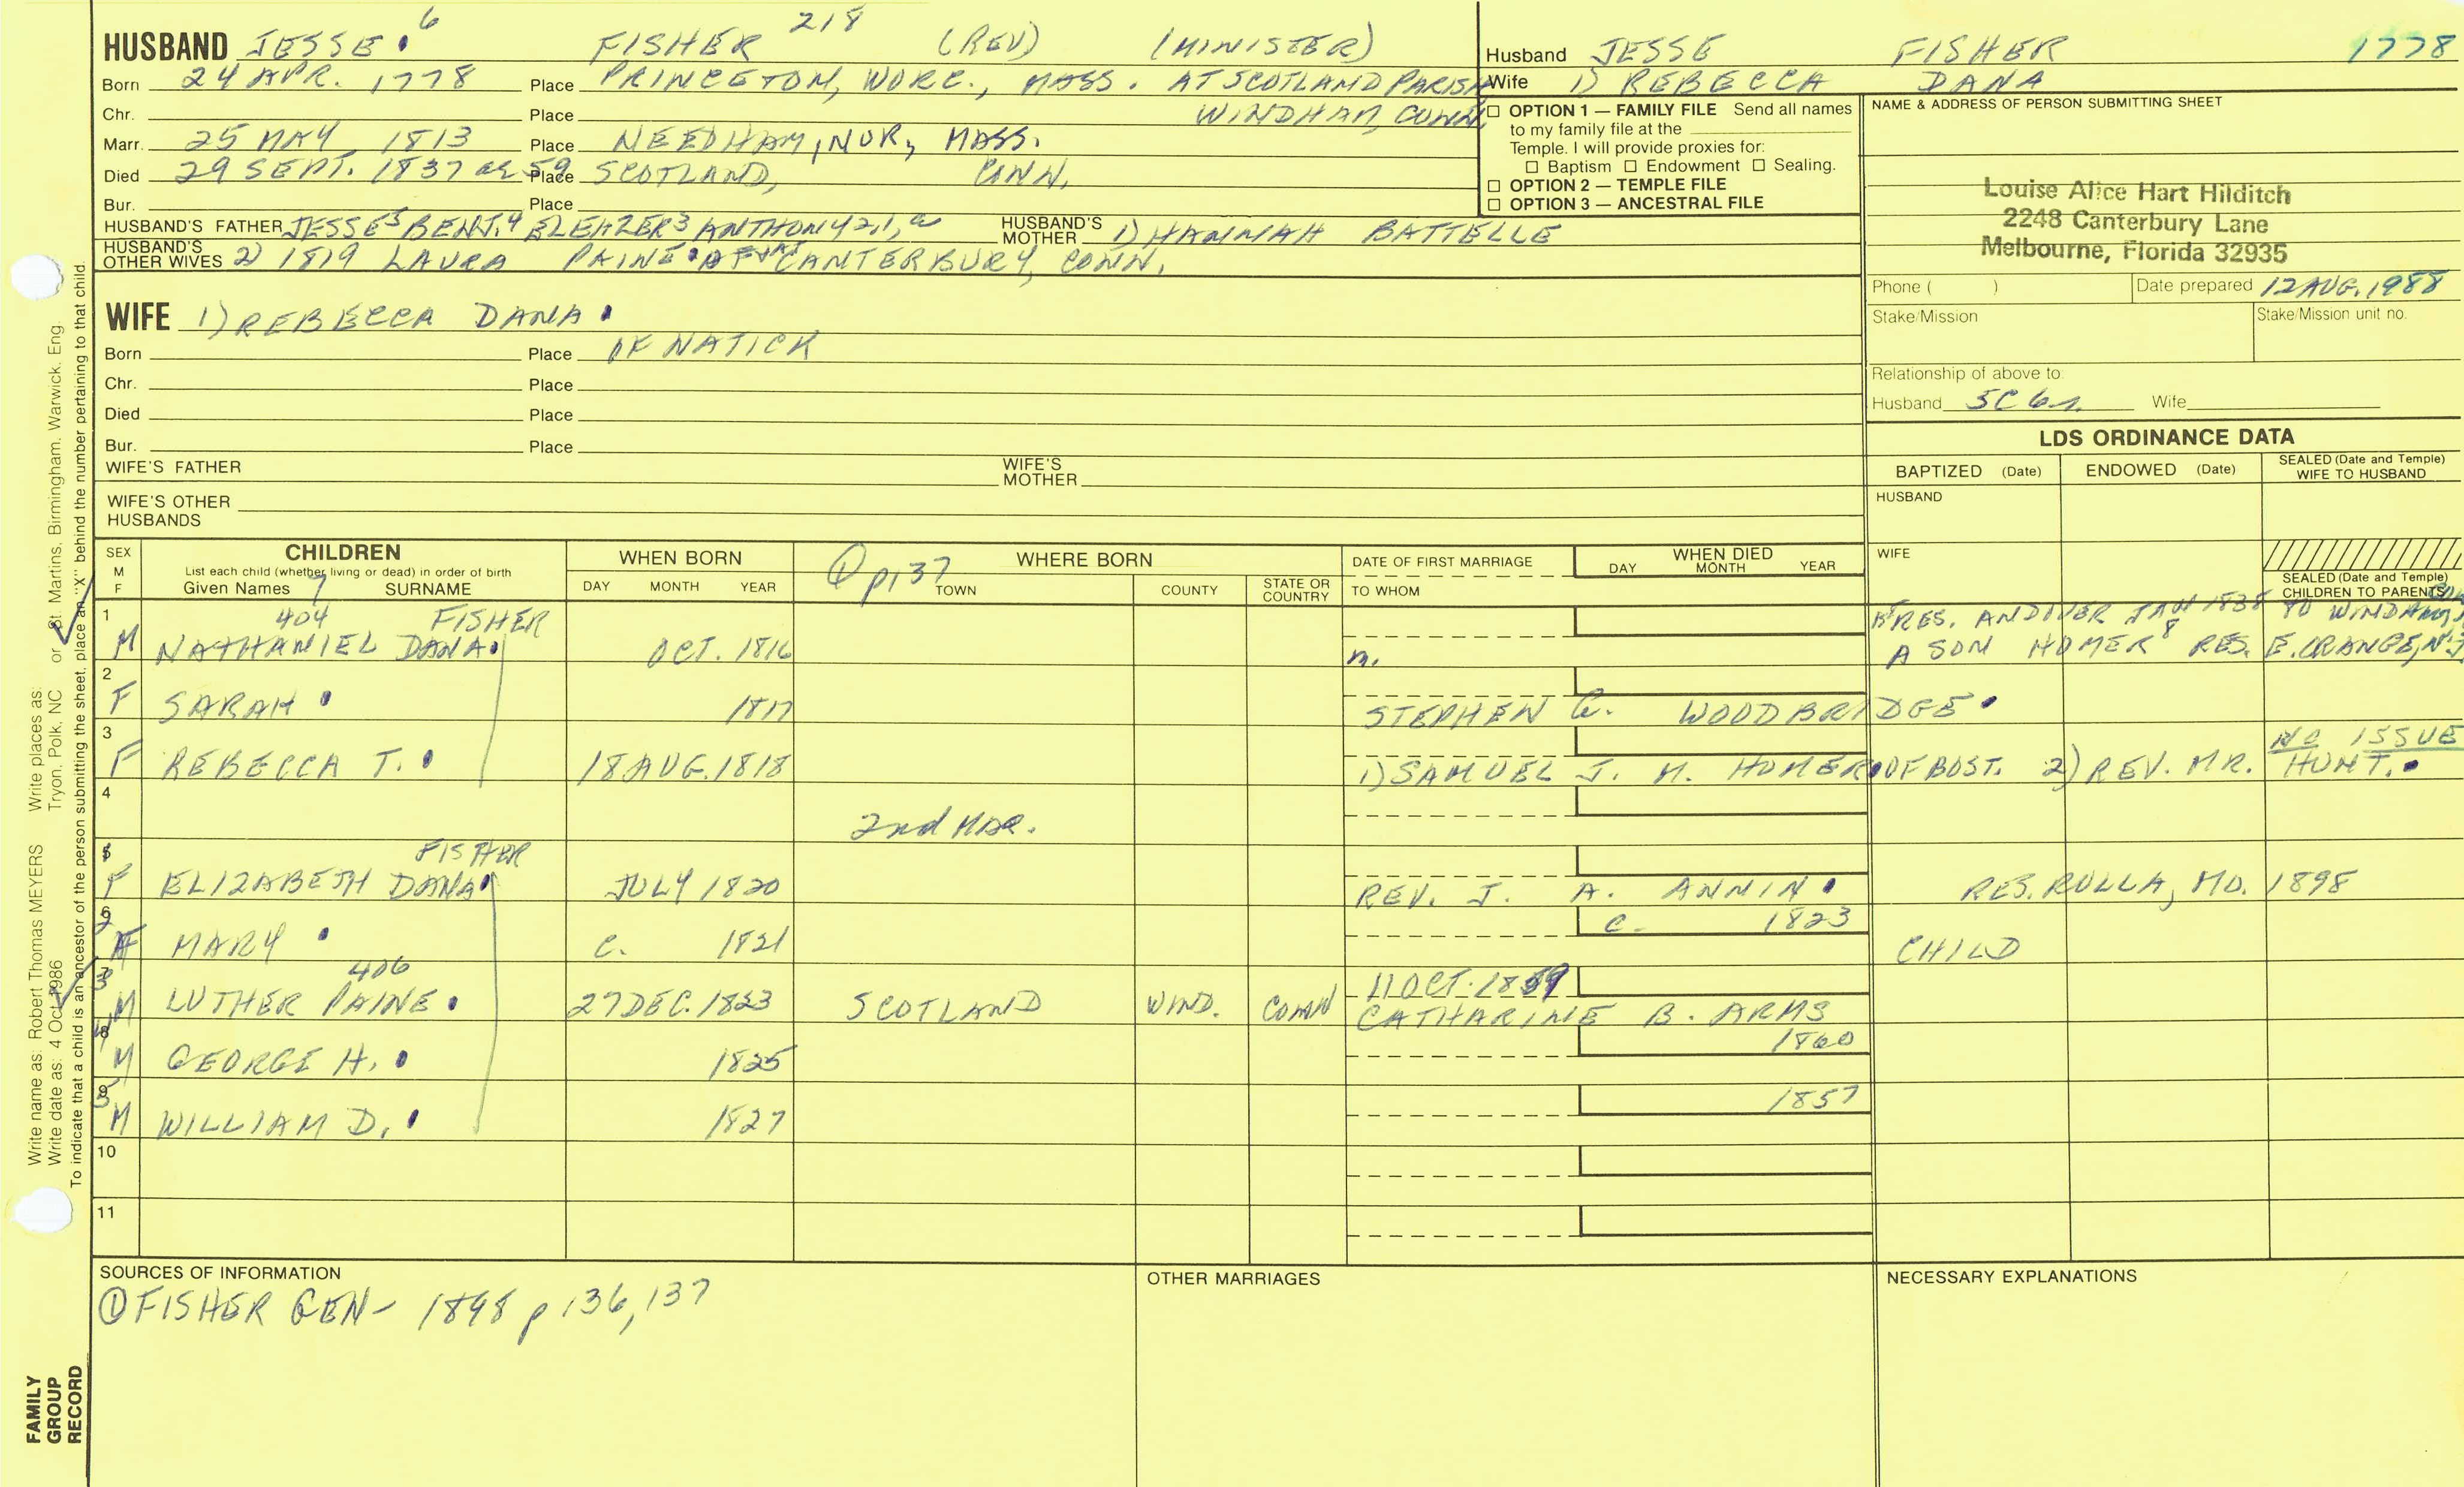 HUSBAND JESSE 6 FISHER 218 (REV) (MINISTER)
Born 24 APR. 1778 Place PRINCETON, WORC., MASS. AT SCOTLAND PARISH
Chr. Place WINDHAM, CONN.
Marr. 25 MAY 1813 Place NEEDHAM, NOR, MASS.
Died 29 SEPT. 1837 ae 59 Place SCOTLAND, CONN.
Bur. Place
HUSBAND'S FATHER JESSE5 BENJ.4 ELEHZER3 ANTHONY2,1, HUSBAND'S MOTHER 1) HANNAH BATTELLE
HUSBAND'S OTHER WIVES 2) 1819 LAURA PAINE OF CANTERBURY, CONN.
Husband JESSE FISHER 1778
Wife 1) REBECCA DANA
□ OPTION 1 — FAMILY FILE Send all names
to my family file at the
Temple. I will provide proxies for:
□ Baptism □ Endowment □ Sealing.
□ OPTION 2 — TEMPLE FILE
□ OPTION 3 — ANCESTRAL FILE
NAME & ADDRESS OF PERSON SUBMITTING SHEET
Louise Alice Hart Hilditch
2248 Canterbury Lane
Melbourne, Florida 32935
Phone ( ) Date prepared 12 AUG. 1988
Stake/Mission Stake/Mission unit no.
Relationship of above to:
Husband 5C 6r. Wife
WIFE 1) REBECCA DANA
Born Place OF NATICK
Chr. Place
Died Place
Bur. Place
WIFE'S FATHER WIFE'S MOTHER
WIFE'S OTHER HUSBANDS
LDS ORDINANCE DATA
BAPTIZED (Date) ENDOWED (Date) SEALED (Date and Temple) WIFE TO HUSBAND
HUSBAND
WIFE
SEALED (Date and Temple) CHILDREN TO PARENTS
SEX M F CHILDREN WHEN BORN WHERE BORN DATE OF FIRST MARRIAGE WHEN DIED
List each child (whether living or dead) in order of birth
Given Names 7 SURNAME DAY MONTH YEAR ① p137 TOWN COUNTY STATE OR COUNTRY TO WHOM DAY MONTH YEAR
1 404 FISHER RES. ANDOVER JAN 1838 TO WINDHAM,
M NATHANIEL DANA OCT. 1816 m. A SON HOMER 8 RES. E. ORANGE, N.J.
2
F SARAH 1817 STEPHEN G. WOODBRIDGE
3 NO ISSUE
F REBECCA T. 18 AUG. 1818 1) SAMUEL J. M. HOMER OF BOST. 2) REV. MR. HUNT.
4
2nd MAR.
5 FISHER
F ELIZABETH DANA JULY 1820 REV. J. A. ANNIN RES. ROLLA, MO. 1898
6 2 C. 1823
F MARY C. 1821 CHILD
7 3 406 11 OCT. 1859
M LUTHER PAINE 27 DEC. 1823 SCOTLAND WIND. CONN CATHARINE B. ARMS
8 4 1860
M GEORGE H. 1825
9 5 1857
M WILLIAM D. 1827
10
11
SOURCES OF INFORMATION OTHER MARRIAGES NECESSARY EXPLANATIONS
① FISHER GEN- 1898 p 136, 137
Write name as: Robert Thomas MEYERS Write places as:
Write date as: 4 Oct 1986 Tryon, Polk, NC or St. Martins, Birmingham, Warwick, Eng.
To indicate that a child is an ancestor of the person submitting the sheet, place an "X" behind the number pertaining to that child.
FAMILY
GROUP
RECORD